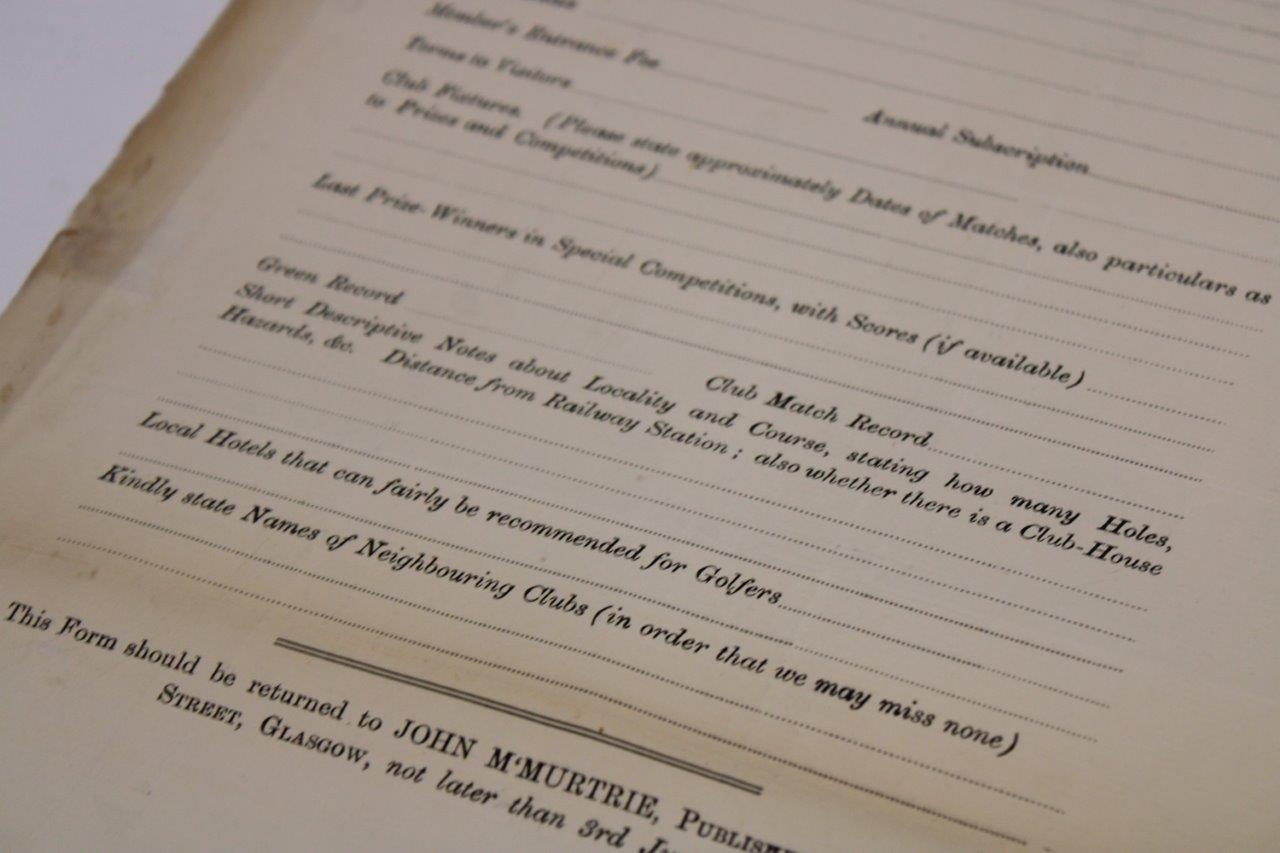 Member's Entrance Fee
Annual Subscription
Terms to Visitors
Club Fixtures. (Please state approximately Dates of Matches, also particulars as
to Prizes and Competitions)
Last Prize-Winners in Special Competitions, with Scores (if available)
Green Record
Club Match Record
Short Descriptive Notes about Locality and Course, stating how many Holes,
Hazards, &c. Distance from Railway Station; also whether there is a Club-House
Local Hotels that can fairly be recommended for Golfers
Kindly state Names of Neighbouring Clubs (in order that we may miss none)
This Form should be returned to JOHN M‘MURTRIE, PUBLISH
STREET, GLASGOW, not later than 3rd